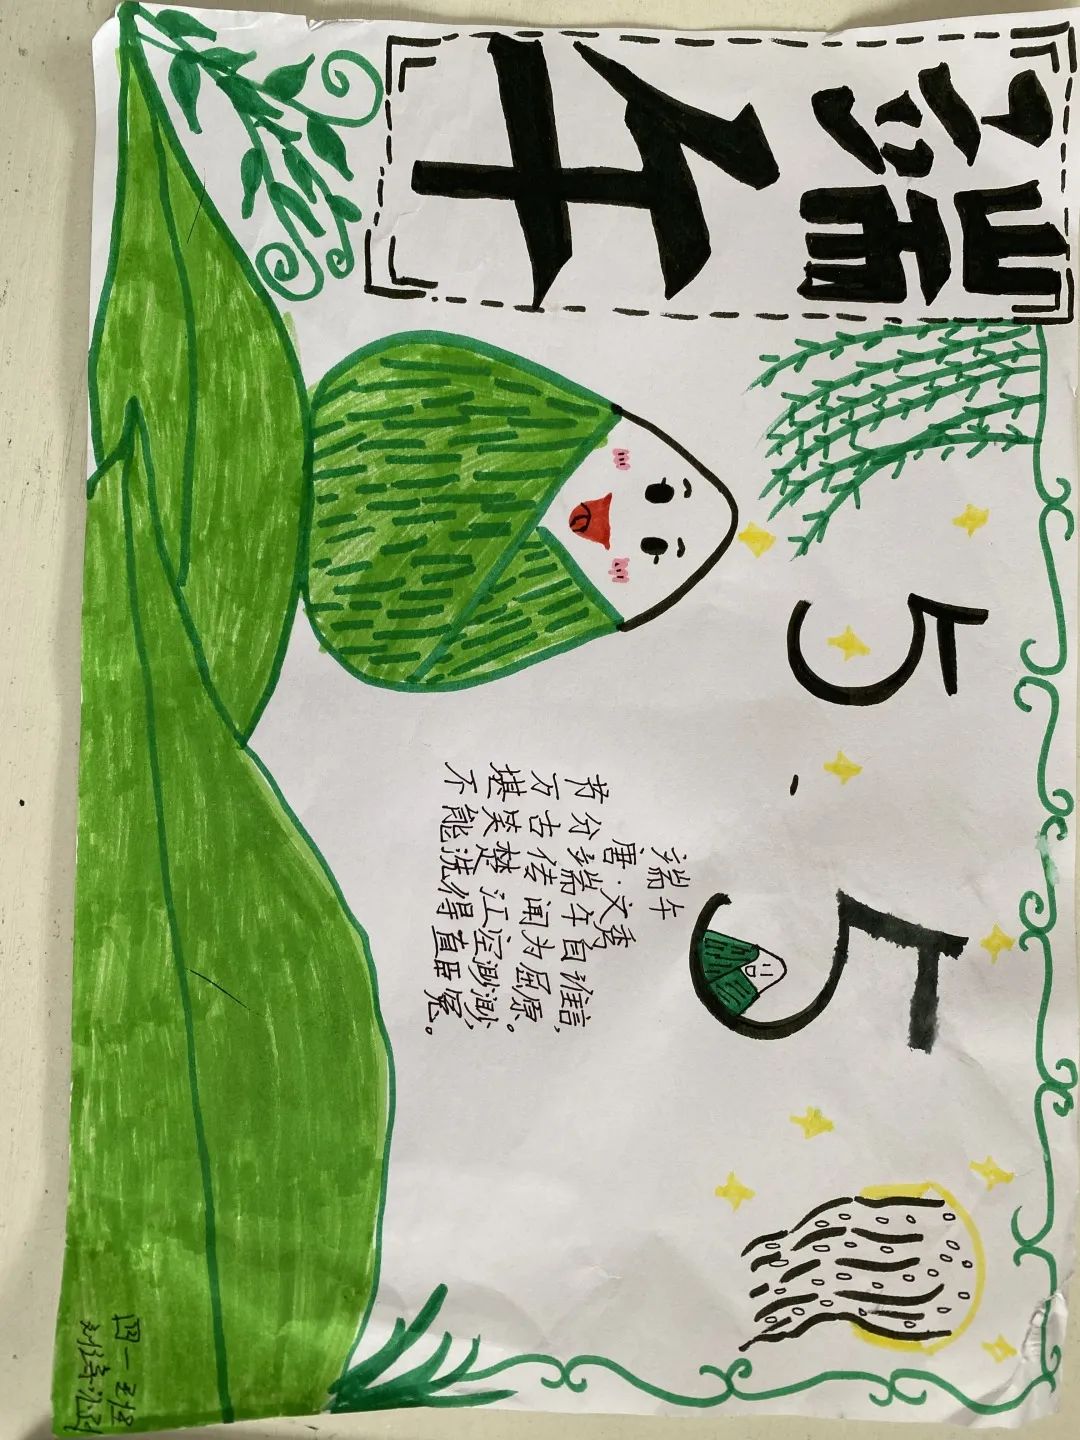 端午
5.5
端午
唐·文秀
节分端午自谁信，
万古传闻为屈原。
堪笑楚江空渺渺，
不能洗得直臣冤。
四一班